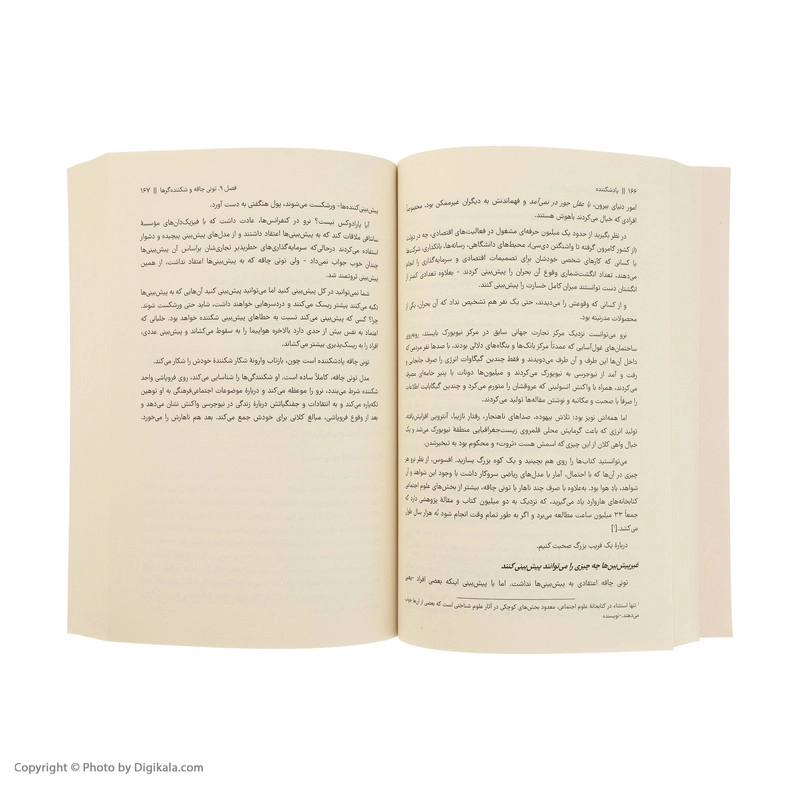 ۱۶۶ || پادشکننده
امور دنیای بیرون، با عقل جور در نمی‌آمد و فهماندنش به دیگران غیرممکن بود، مخصوصاً
افرادی که خیال می‌کردند باهوش هستند.
در نظر بگیرید از حدود یک میلیون حرفه‌ای مشغول در فعالیت‌های اقتصادی، چه در دولت
(از کشور کامرون گرفته تا واشنگتن دی‌سی)، محیط‌های دانشگاهی، رسانه‌ها، بانکداری، شرکت‌ها
یا کسانی که کارهای شخصی خودشان برای تصمیمات اقتصادی و سرمایه‌گذاری را انجام
می‌دهند، تعداد انگشت‌شماری وقوع آن بحران را پیش‌بینی کردند - بعلاوه تعدادی کمتر از
انگشتان دست توانستند میزان کامل خسارت را پیش‌بینی کنند.
و از کسانی که وقوعش را می‌دیدند، حتی یک نفر هم تشخیص نداد که آن بحران، یکی از
محصولات مدرنیته بود.
نرو می‌توانست نزدیک مرکز تجارت جهانی سابق در مرکز نیویورک بایستد، روبه‌روی
ساختمان‌های غول‌آسایی که عمدتاً مرکز بانک‌ها و بنگاه‌های دلالی بودند، با صدها نفر مردمی که
داخل آن‌ها این طرف و آن طرف می‌دویدند و فقط چندین گیگاوات انرژی را صرف جابجایی و
رفت و آمد از نیوجرسی به نیویورک می‌کردند و میلیون‌ها دونات با پنیر خامه‌ای مصرف
می‌کردند، همراه با واکنش انسولینی که عروقشان را متورم می‌کرد و چندین گیگابایت اطلاعات
را صرفاً با صحبت و مکاتبه و نوشتن مقاله‌ها تولید می‌کردند.
اما همه‌اش نویز بود: تلاش بیهوده، صداهای ناهنجار، رفتار نازیبا، آنتروپی افزایش‌یافته،
تولید انرژی که باعث گرمایش محلی قلمروی زیست‌جغرافیایی منطقهٔ نیویورک می‌شد و یک
خیال واهی کلان از این چیزی که اسمش هست «ثروت» و محکوم بود به تبخیرشدن.
می‌توانستید کتاب‌ها را روی هم بچینید و یک کوه بزرگ بسازید. افسوس، از نظر نرو هر
چیزی در آن‌ها که با احتمال، آمار یا مدل‌های ریاضی سروکار داشت با وجود این شواهد و آن
شواهد، بادِ هوا بود. به‌علاوه با صرف چند ناهار با تونی چاقه، بیشتر از بخش‌های علوم اجتماعی
کتابخانه‌های هاروارد یاد می‌گیرید، که نزدیک به دو میلیون کتاب و مقالهٔ پژوهشی دارد که
جمعاً ۳۳ میلیون ساعت مطالعه می‌برد و اگر به طور تمام وقت انجام شود نُه هزار سال طول
می‌کشد.[۱]
دربارهٔ یک فریب بزرگ صحبت کنیم.
غیرپیش‌بین‌ها چه چیزی را می‌توانند پیش‌بینی کنند
تونی چاقه اعتقادی به پیش‌بینی‌ها نداشت. اما با پیش‌بینی اینکه بعضی افراد -یعنی
۱ تنها استثناء در کتابخانهٔ علوم اجتماعی، معدود بخش‌های کوچکی در آثار علوم شناختی است که بعضی از آن‌ها جواب
می‌دهند. -نویسنده
فصل ۹. تونی چاقه و شکننده‌گرها || ۱۶۷
پیش‌بینی‌کننده‌ها- ورشکست می‌شوند، پول هنگفتی به دست آورد.
آیا پارادوکس نیست؟ نرو در کنفرانس‌ها، عادت داشت که با فیزیک‌دان‌های مؤسسهٔ
سانتافی ملاقات کند که به پیش‌بینی‌ها اعتقاد داشتند و از مدل‌های پیش‌بینی پیچیده و دشوار
استفاده می‌کردند درحالی‌که سرمایه‌گذاری‌های خطرپذیر تجاری‌شان براساس آن پیش‌بینی‌ها
چندان خوب جواب نمی‌داد - ولی تونی چاقه که به پیش‌بینی‌ها اعتقاد نداشت، از همین
پیش‌بینی ثروتمند شد.
شما نمی‌توانید در کل پیش‌بینی کنید اما می‌توانید پیش‌بینی کنید آن‌هایی که به پیش‌بینی‌ها
تکیه می‌کنند بیشتر ریسک می‌کنند و دردسرهایی خواهند داشت، شاید حتی ورشکست شوند.
چرا؟ کسی که پیش‌بینی می‌کند نسبت به خطاهای پیش‌بینی شکننده خواهد بود. خلبانی که
اعتماد به نفس بیش از حدی دارد بالاخره هواپیما را به سقوط می‌کشاند و پیش‌بینی عددی،
افراد را به ریسک‌پذیری بیشتر می‌کشاند.
تونی چاقه پادشکننده است چون، بازتاب وارونهٔ شکار شکنندهٔ خودش را شکار می‌کند.
مدل تونی چاقه، کاملاً ساده است. او شکنندگی‌ها را شناسایی می‌کند، روی فروپاشی واحد
شکننده شرط می‌بندد، نرو را موعظه می‌کند و دربارهٔ موضوعات اجتماعی‌فرهنگی به او توهین
تکه‌پاره می‌کند و به انتقادات و جفنگیاتش دربارهٔ زندگی در نیوجرسی واکنش نشان می‌دهد و
بعد از وقوع فروپاشی، مبالغ کلانی برای خودش جمع می‌کند. بعد هم ناهارش را می‌خورد.
Copyright © Photo by Digikala.com